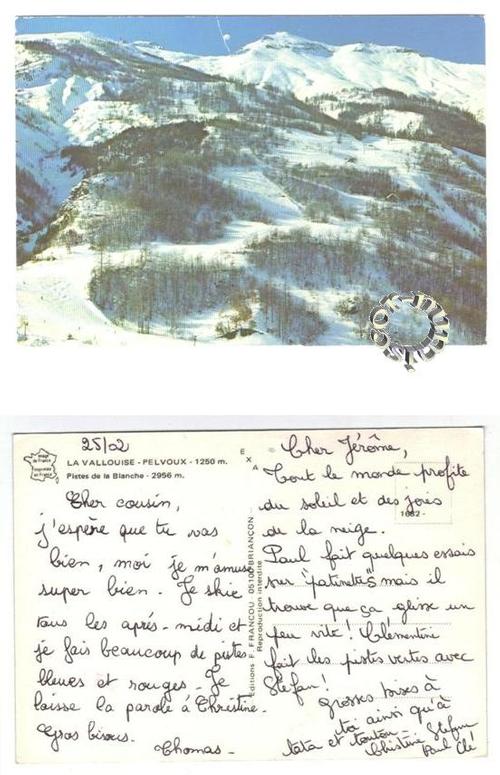 25/02
Image de France
LA VALLOUISE - PELVOUX - 1250 m.
Pistes de la Blanche - 2956 m.
Cher cousin,
j'espère que tu vas
bien, moi je m'amuse
super bien. Je skie
tous les après-midi et
je fais beaucoup de pistes
bleues et rouges. Je
laisse la parole à Christine.
Gros bisous.
Thomas
EXA
Editions F. FRANCOU, 05100 BRIANCON
Reproduction interdite
Cher Jérôme,
Tout le monde profite
du soleil et des joies
de la neige.
1682 -
Paul fait quelques essais
sur "patinettes" mais il
trouve que ça glisse un
peu vite ! Clémentine
fait des pistes vertes avec
Stefan !
Grosses bises à
toi ainsi qu'à
tata et tonton -
Christine Stefan
Paul Clé